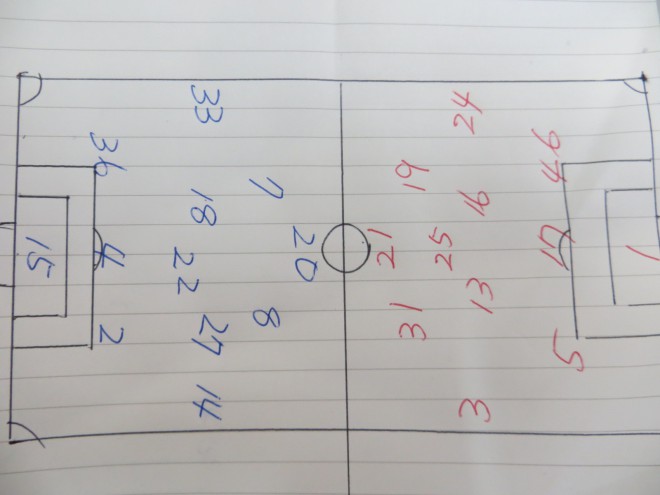 33
36
7
18
20
15
4
22
8
2
27
14
24
46
19
16
21
25
17
1
13
31
5
3